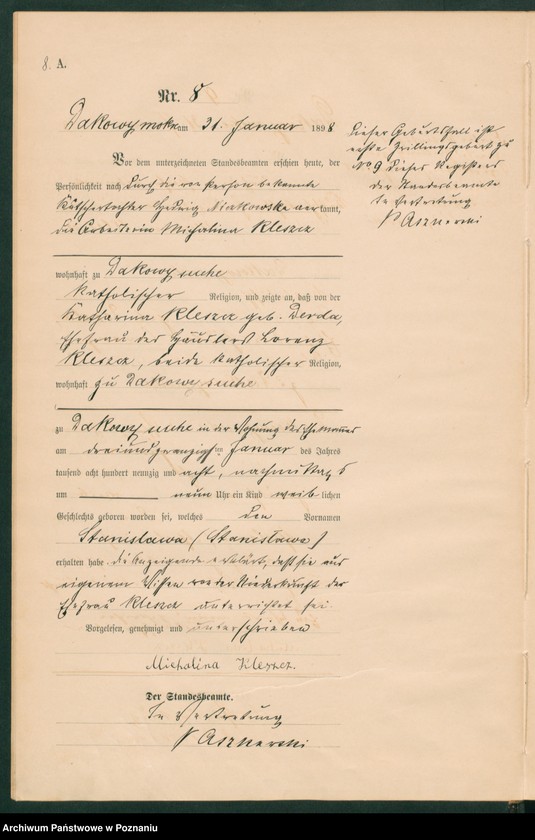 8. A.
Nr. 8
Dakowy mokre am 31. Januar 1898
Vor dem unterzeichneten Standesbeamten erschien heute, der
Persönlichkeit nach durch die von Person bekannte
Kutschertochter Hedwig aner kannt,
die Arbeiterin Michalina Klesza
wohnhaft zu Dakowy suche
katholischer Religion, und zeigte an, daß von der
Katharina Klesza geb. Derda,
Ehefrau des Häuslers Lorenz
Klesza, beide katholischer Religion,
wohnhaft zu Dakowy suche
zu Dakowy suche in der Wohnung des Ehemannes
am dreiundzwanzigsten Januar des Jahres
tausend acht hundert neunzig und acht, nachmittags
um neun Uhr ein Kind weib lichen
Geschlechts geboren worden sei, welches den Vornamen
Stanislawa (Stanisława)
erhalten habe. die Anzeigende erklärte, daß sie aus
eigenem Wissen von der Niederkunft der
Ehefrau Klesza unterrichtet sei.
Vorgelesen, genehmigt und unterschrieben
Michalina Klesza.
Der Standesbeamte.
In Vertretung
Dieser Geburtsfall ist
erste Zwillingsgeburt zu
No 9 dieses Registers
der Standesbeamte
In Vertretung
Archiwum Państwowe w Poznaniu